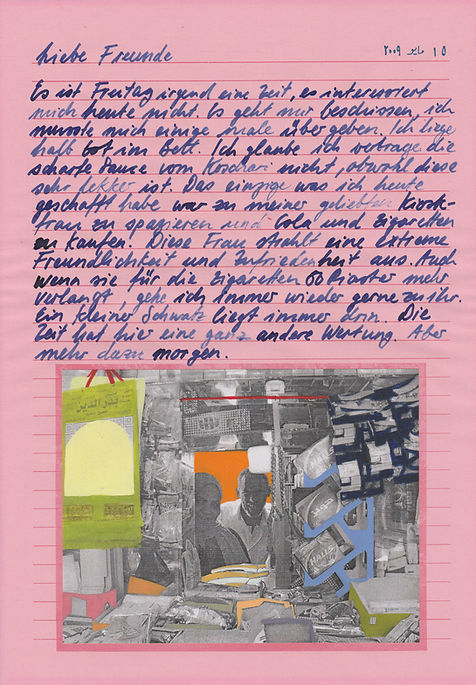 Liebe Freunde
١٥ مايو ٢٠٠٩
Es ist Freitag irgend eine Zeit, es interessiert
mich heute nicht. Es geht mir beschissen, ich
musste mich einige male übergeben. Ich liege
halb tot im Bett. Ich glaube ich vertrage die
scharfe Sauce vom Koscheri nicht, obwohl diese
sehr lekker ist. Das einzige was ich heute
geschafft habe war zu meiner geliebten Kiosk-
frau zu spazieren und Cola und Zigaretten
zu kaufen. Diese Frau strahlt eine extreme
Freundlichkeit und Zufriedenheit aus. Auch
wenn sie für die Zigaretten 60 Piaster mehr
verlangt, gehe ich immer wieder gerne zu ihr.
Ein kleiner Schwatz liegt immer drin. Die
Zeit hat hier eine ganz andere Wertung. Aber
mehr dazu morgen.
بدر الدين
HALLS